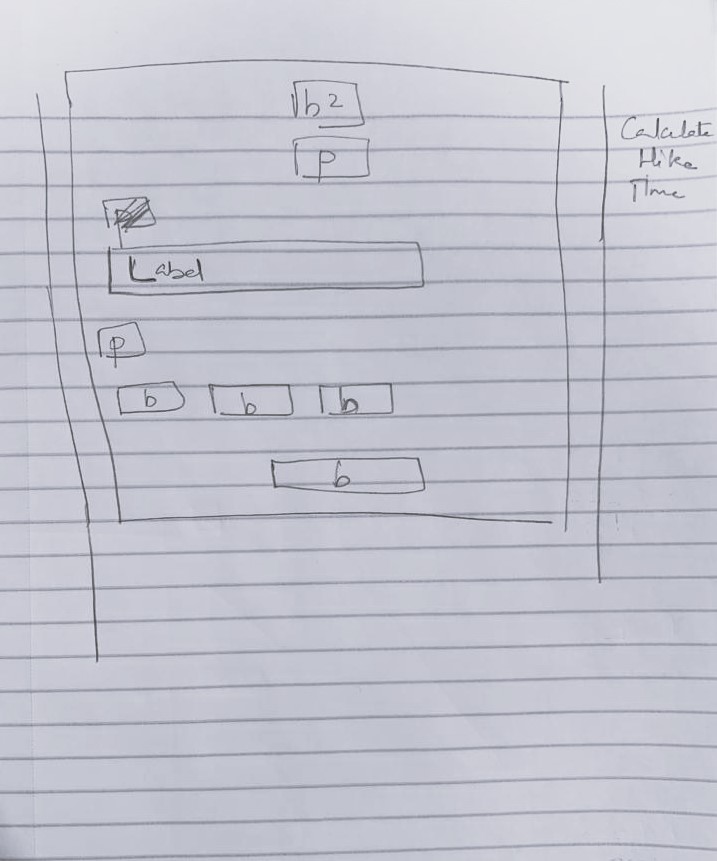 h2
p
Label
p
b b b
b
Calculate
Hike
Time